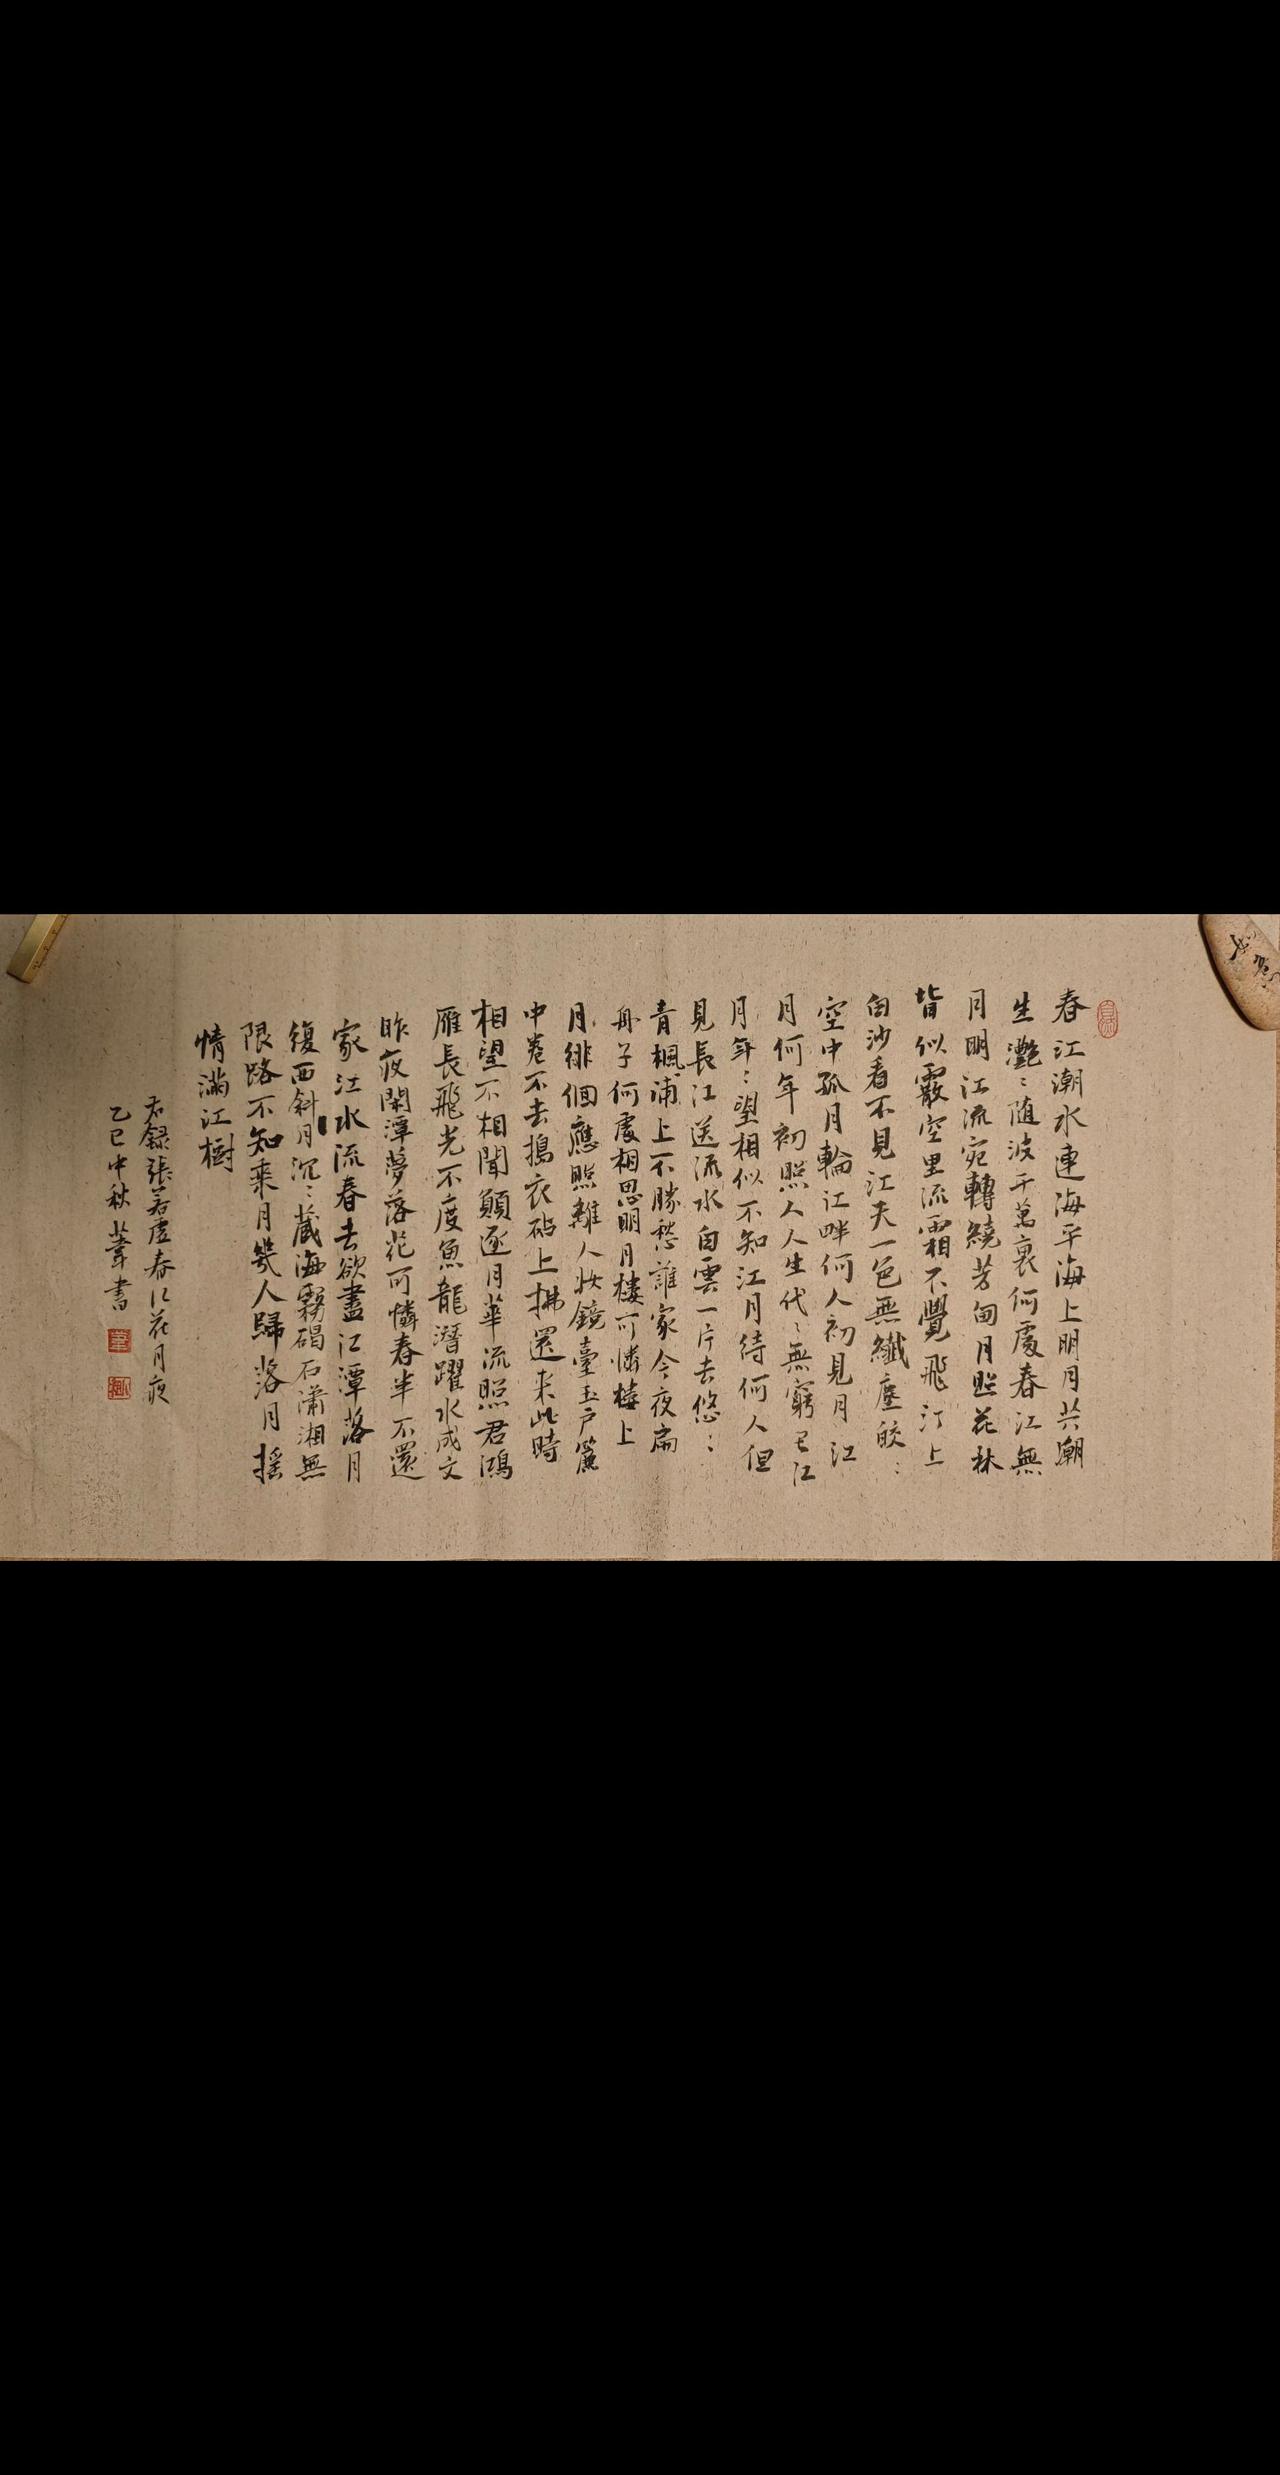 春江潮水連海平海上明月共潮
生灧〻随波千萬裏何處春江無
月明江流宛轉繞芳甸月照花林
皆似霰空里流霜不覺飛汀上
白沙看不見江天一色無纖塵皎〻
空中孤月輪江畔何人初見月江
月何年初照人人生代〻無窮已江
月年〻望相似不知江月待何人但
見長江送流水白雲一片去悠〻
青楓浦上不勝愁誰家今夜扁
舟子何處相思明月樓可憐樓上
月徘徊應照離人妝鏡臺玉戶簾
中卷不去搗衣砧上拂還来此時
相望不相聞願逐月華流照君鴻
雁長飛光不度魚龍潛躍水成文
昨夜閑潭夢落花可憐春半不還
家江水流春去欲盡江潭落月
復西斜月沉〻藏海霧碣石潇湘無
限路不知乘月幾人歸落月摇
情滿江樹
右録張若虛春江花月夜
乙巳中秋葦書